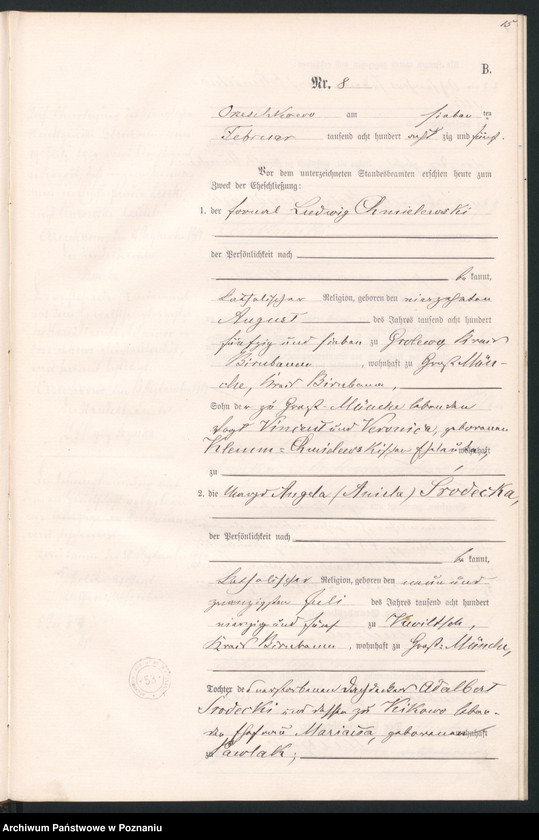 15
B.
Nr. 8
Orzeschkowo am sieben ten
Februar tausend acht hundert acht zig und fünf.
Vor dem unterzeichneten Standesbeamten erschien heute zum
Zweck der Eheschließung:
1. der fornal Ludwig Chmielewski
der Persönlichkeit nach
be kannt,
katholischer Religion, geboren den vierzehnten
August des Jahres tausend acht hundert
fünfzig und sieben zu Kreis
Birnbaum, wohnhaft zu Groß-Mün-
che, Kreis Birnbaum,
Sohn der zu Groß-Münche lebenden
Vogt Vincent und Veronica, geborenen
Klemm-Chmielewskischen Eheleute, wohnhaft
zu
2. die Magd Angela (Aniela) Srodecka,
der Persönlichkeit nach
be kannt,
katholischer Religion, geboren den neun und
zwanzigsten Juli des Jahres tausend acht hundert
vierzig und fünf zu
Kreis Birnbaum, wohnhaft zu Groß-Münche,
Tochter des verstorbenen Adalbert
Srodecki und dessen zu leben-
den Ehefrau Marianna, geborenen wohnhaft
zu Pawlak;
53
Archiwum Państwowe w Poznaniu